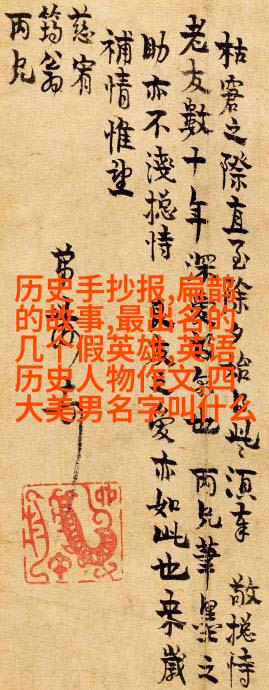 枯窘之際直至除夕此須奉 敬
老友數十年深愛也 丙兄筆墨之
助亦不淺恃 愛亦如此也
補情惟望
慈宥
筠翁
丙兄
弟
历史手抄报,扁鹊
的故事,最出名的
几个假英雄,英语
历史人物作文,四
大美男名字叫什么